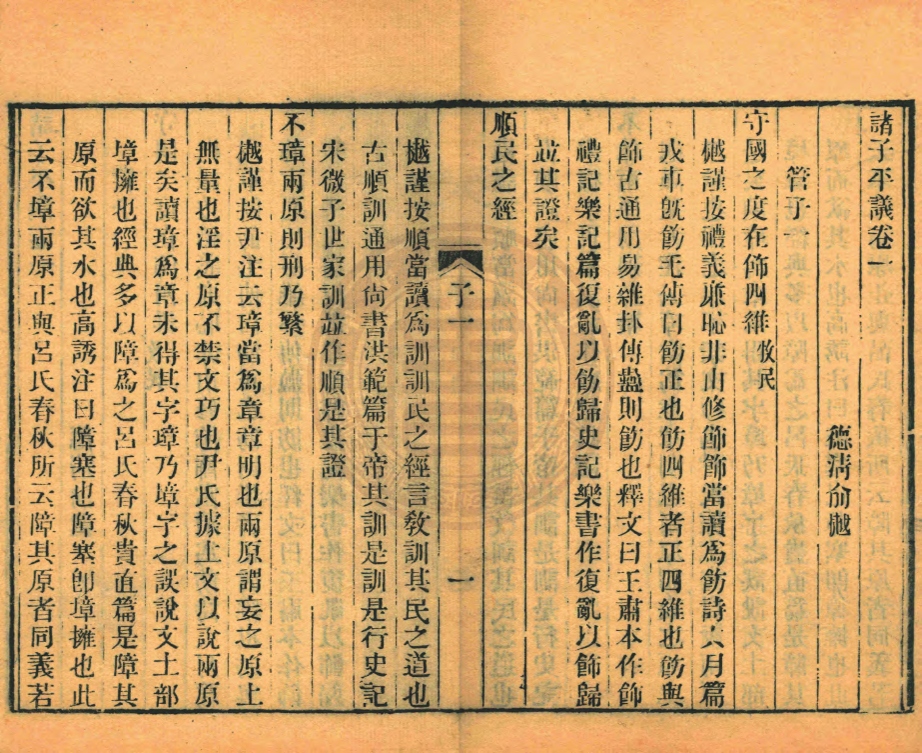 諸子平議卷一
德清俞樾
管子一
守國之度在飾四維牧民
樾謹按禮義廉恥非由修飾飾當讀爲飭詩六月篇
戎車旣飭毛傳曰飭正也飭四維者正四維也飭與
飾古通用易雜卦傳蠱則飭也釋文曰王肅本作飾
禮記樂記篇復亂以飭歸史記樂書作復亂以飾歸
竝其證矣
順民之經
樾謹按順當讀爲訓訓民之經言敎訓其民之道也
古順訓通用尙書洪範篇于帝其訓是訓是行史記
宋微子世家訓竝作順是其證
不璋兩原則刑乃繁
樾謹按尹注云璋當爲章章明也兩原謂妄之原上
無量也淫之原不禁文巧也尹氏據上文以說兩原
是矣讀璋爲章未得其字璋乃墇字之誤說文土部
墇擁也經典多以障爲之呂氏春秋貴直篇是障其
原而欲其水也高誘注曰障塞也障塞卽墇擁也此
云不墇兩原正與呂氏春秋所云障其原者同義若
子一
一